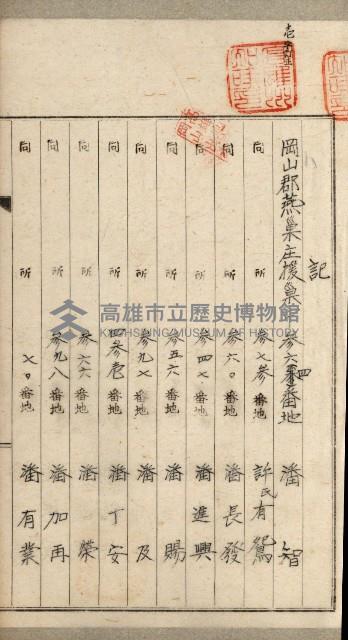 記
岡山郡燕巢庄援巢 參六四番地 潘 智
同 所 參七參番地 許氏有鴛
同 所 參六〇番地 潘長發
同 所 參四七番地 潘進興
同 所 參五六番地 潘 賜
同 所 參九七番地 潘 及
同 所 四參壱番地 潘丁安
同 所 參六六番地 潘 榮
同 所 參九八番地 潘加再
同 所 七〇番地 潘有業
高雄市立歷史博物館
KAOHSIUNG MUSEUM OF HISTORY